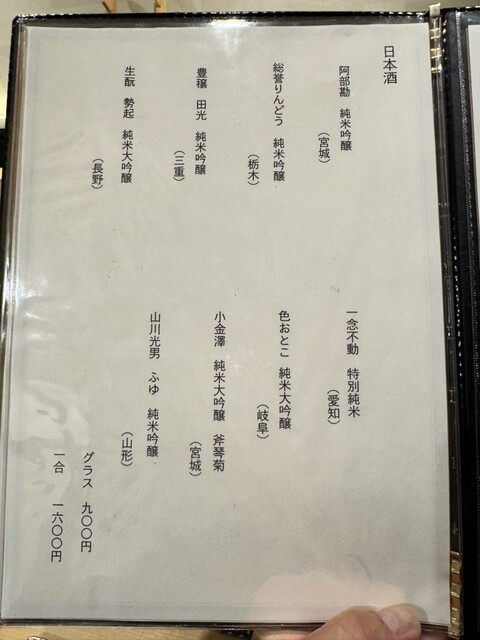 日本酒
阿部勘 純米吟醸
(宮城)
総誉りんどう 純米吟醸
(栃木)
豊穣 田光 純米吟醸
(三重)
生酛 勢起 純米大吟醸
(長野)
一念不動 特別純米
(愛知)
色おとこ 純米大吟醸
(岐阜)
小金澤 純米大吟醸 斧琴菊
(宮城)
山川光男 ふゆ 純米吟醸
(山形)
グラス 九〇〇円
一合 一六〇〇円